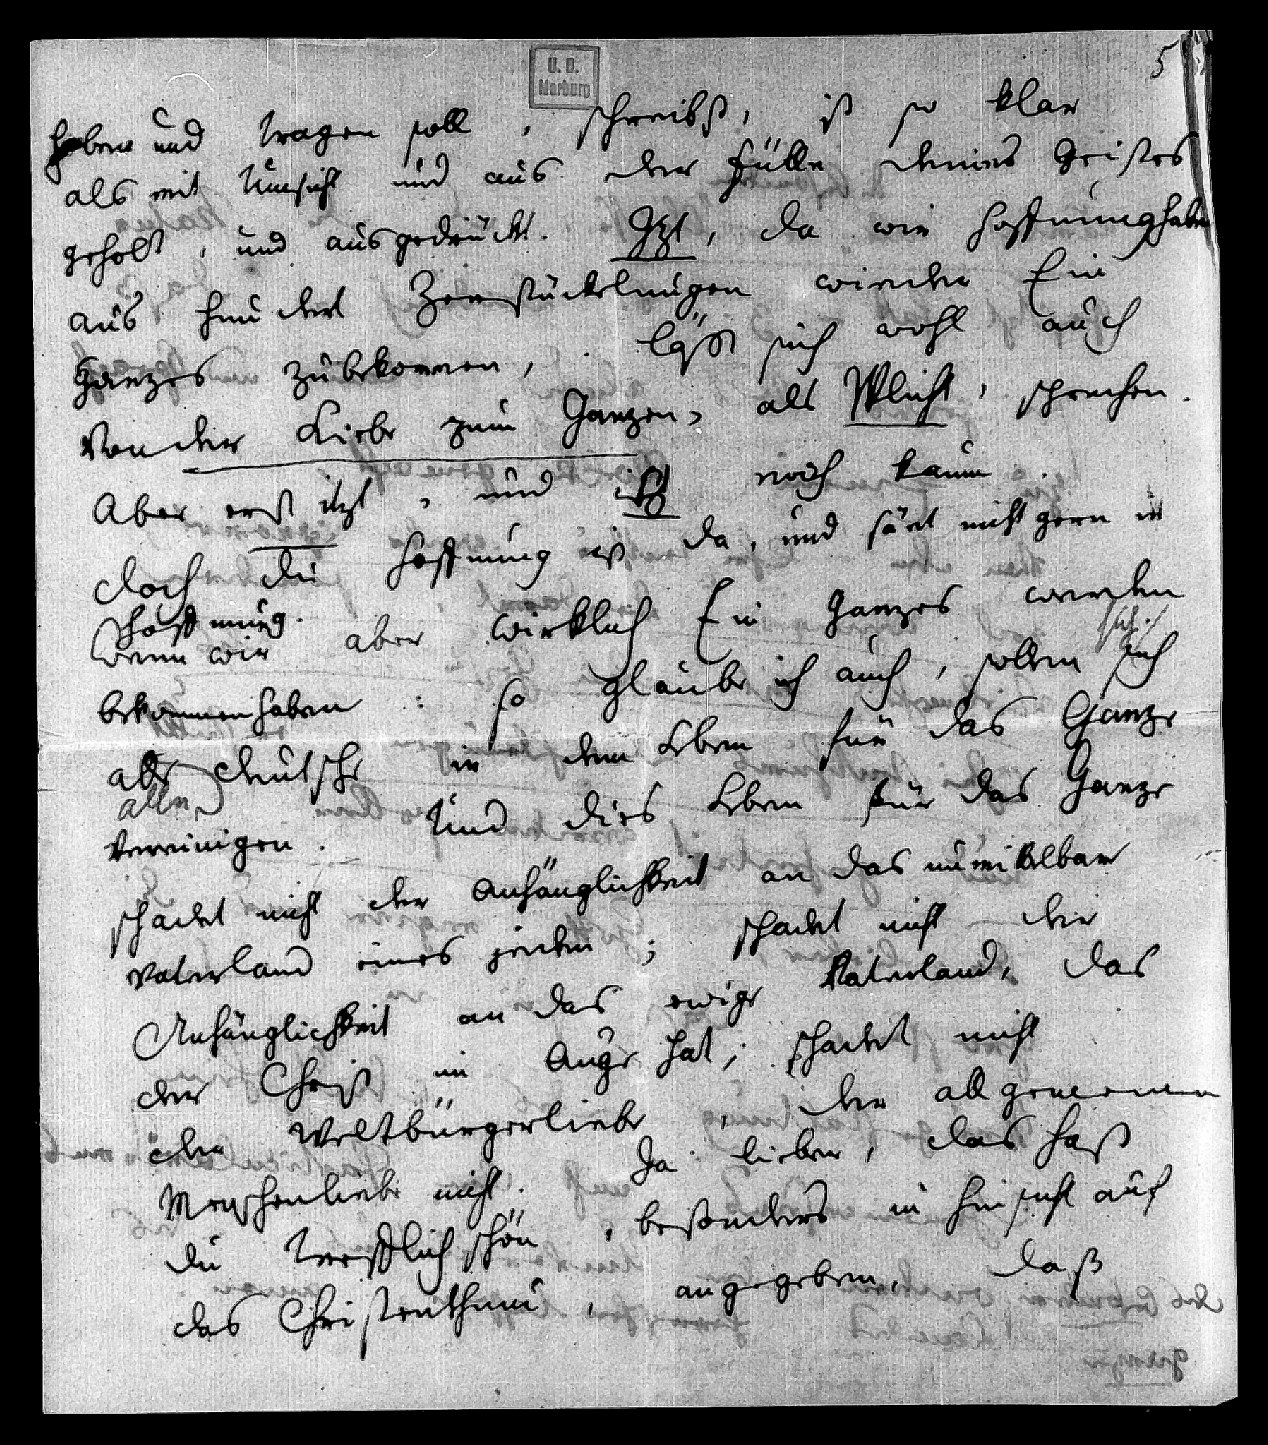 5
U. B.
Marburg
haben und tragen soll, schreibst, ist so klar
als mit Umsicht und aus der Fülle deines Geistes
geholt, und ausgedrückt. Jtzt, da wir Hoffnung haben
aus hundert Zerstückelungen wieder Ein
Ganzes zubekommen, läßt sich wohl auch
von der Liebe zum Ganzen, als Pflicht, sprechen.
Aber erst itzt, und itzt noch kaum.
doch die Hoffnung ist da, und stört nicht gern in
Hoffnung.
Wenn wir aber wirklich Ein Ganzes werden
bekommen haben: so glaube ich auch, sollen sich
sich
alle deutsche in dem Leben für das Ganze
alle
vereinigen. Und dies Leben für das Ganze
schadet nicht der Anhänglichkeit an das unmittelbare
Vaterland eines jeden; schadet nicht der
Anhänglichkeit an das ewige Vaterland, das
der Christ im Auge hat; schadet nicht
der Weltbürgerliebe, der allgemeinen
Menschenliebe nicht. Ja lieber, das hast
du trefflich schön, besonders in Hinsicht auf
das Christenthum, angegeben, daß